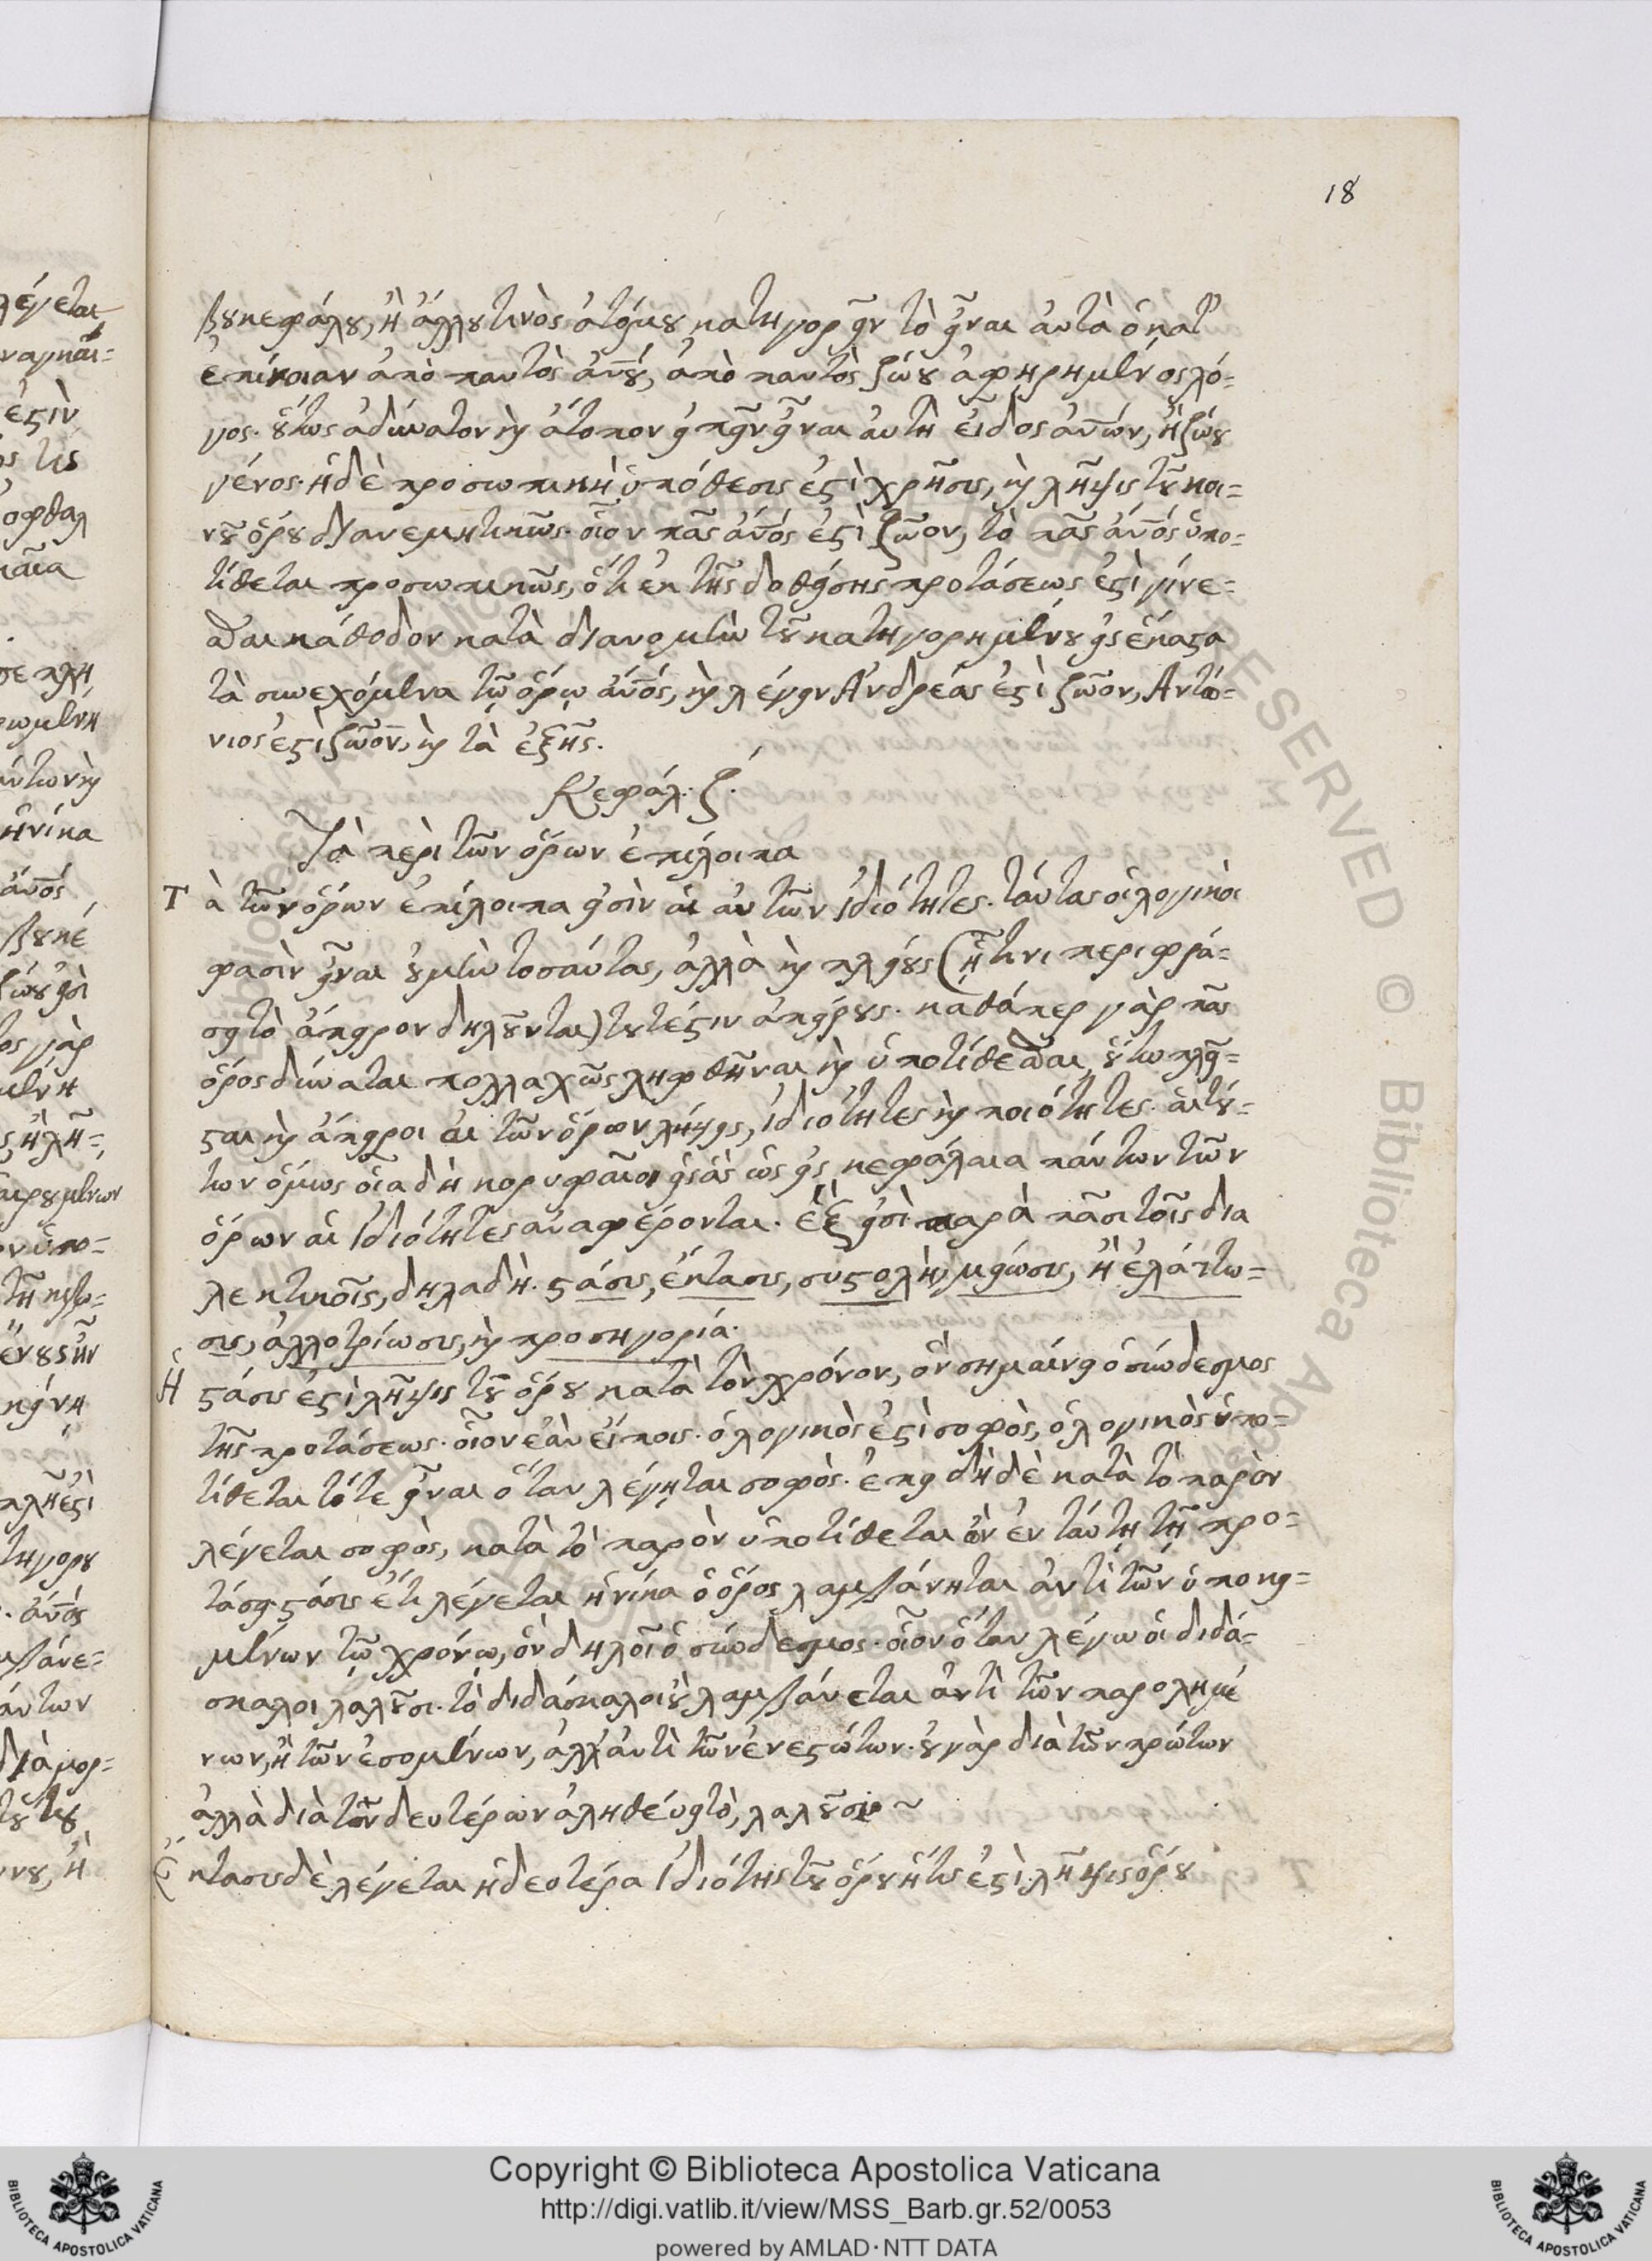 18
βουκεφάλου, ἢ ἄλλου τινὸς ἀτόμου κατηγορεῖν τὸ εἶναι αὐτὰ ὁ κατ'
ἐπίνοιαν ἀπὸ παντὸς ἀν̅ου, ἀπὸ παντὸς ζώου ἀφῃρημένος λό-
γος. οὕτως ἀδύνατον καὶ ἄτοπον εἰπεῖν εἶναι αὐτὴ εἶδος ἀν̅ων, ἢ ζώου
γένος. ἡ δὲ προσωπικὴ ὑπόθεσις ἐστὶ χρῆσις, καὶ λῆψις τοῦ κοι-
νοῦ ὅρου διανεμητικῶς. οἷον πᾶς ἄν̅ος ἐστὶ ζῶον, τὸ πᾶς ἄν̅ος ὑπο-
τίθεται προσωπικῶς, ὅτι ἐκ τῆς δοθείσης προτάσεως ἐστὶ γίνε-
σθαι κάθοδον κατὰ διανομὴν τοῦ κατηγορημένου εἰς ἕκαστα
τὰ συνεχόμενα τῷ ὅρῳ ἄν̅ος, καὶ λέγειν Ἀνδρέας ἐστὶ ζῶον, Ἀντώ-
νιος ἐστὶ ζῶον, καὶ τὰ ἑξῆς.
Κεφάλ. ζ.
Τὰ περὶ τῶν ὅρων ἐπίλοιπα
Τὰ τῶν ὅρων ἐπίλοιπα εἰσὶν αἱ αὐτῶν ἰδιότητες. ταύτας οἱ λογικοὶ
φασὶν εἶναι οὐ μὴν τοσαύτας, ἀλλὰ καὶ πλείους (ᾗτινι περιφρά-
σει τὸ ἄπειρον δηλοῦνται) τουτέστιν ἀπείρους. καθάπερ γὰρ πᾶς
ὅρος δύναται πολλαχῶς ληφθῆναι καὶ ὑποτίθεσθαι, οὕτω πλεῖ-
σται καὶ ἄπειροι αἱ τῶν ὅρων λήψεις, ἰδιότητες καὶ ποιότητες. αἱ τού-
των ὅμως οἷα δὴ κορυφαῖοι εἰς ἃς ὡς εἰς κεφάλαια πάντων τῶν
ὅρων αἱ ἰδιότητες ἀναφέρονται. ἓξ εἰσὶ παρὰ πᾶσι τοῖς δια
λεκτικοῖς, δηλαδὴ. στάσις, ἔκτασις, συστολὴ, μείωσις, ἢ ἐλάττω-
σις, ἀλλοτρίωσις, καὶ προσηγορία.
Ἡ στάσις ἐστὶ λῆψις τοῦ ὅρου κατὰ τὸν χρόνον, ὃν σημαίνει ὁ σύνδεσμος
τῆς προτάσεως. οἷον ἐὰν εἴποις. ὁ λογικὸς ἐστὶ σοφὸς, ὁ λογικὸς ὑπο-
τίθεται τότε εἶναι ὅταν λέγηται σοφὸς. ἐπειδὴ δὲ κατὰ τὸ παρὸν
λέγεται σοφὸς, κατὰ τὸ παρὸν ὑποτίθεται ὂν ἐν ταύτῃ τῇ προ-
τάσει. στάσις ἔτι λέγεται ἡνίκα ὁ ὅρος λαμβάνηται ἀντὶ τῶν ὑποκει-
μένων τῷ χρόνῳ, ὃν δηλοῖ ὁ σύνδεσμος. οἷον ὅταν λέγω οἱ διδά-
σκαλοι λαλοῦσι. τὸ διδάσκαλοι οὐ λαμβάνεται ἀντὶ τῶν παρολημέ
νων, ἢ τῶν ἐσομένων, ἀλλ' ἀντὶ τῶν ἐνεστώτων. οὐ γὰρ διὰ τῶν πρώτων
ἀλλὰ διὰ τῶν δευτέρων ἀληθεύει τὸ, λαλοῦσι ~
Ἔκτασις δὲ λέγεται ἡ δευτέρα ἰδιότης τοῦ ὅρου ἥτις ἐστὶ λῆψις ὅρου
Copyright © Biblioteca Apostolica Vaticana
http://digi.vatlib.it/view/MSS_Barb.gr.52/0053
powered by AMLAD·NTT DATA